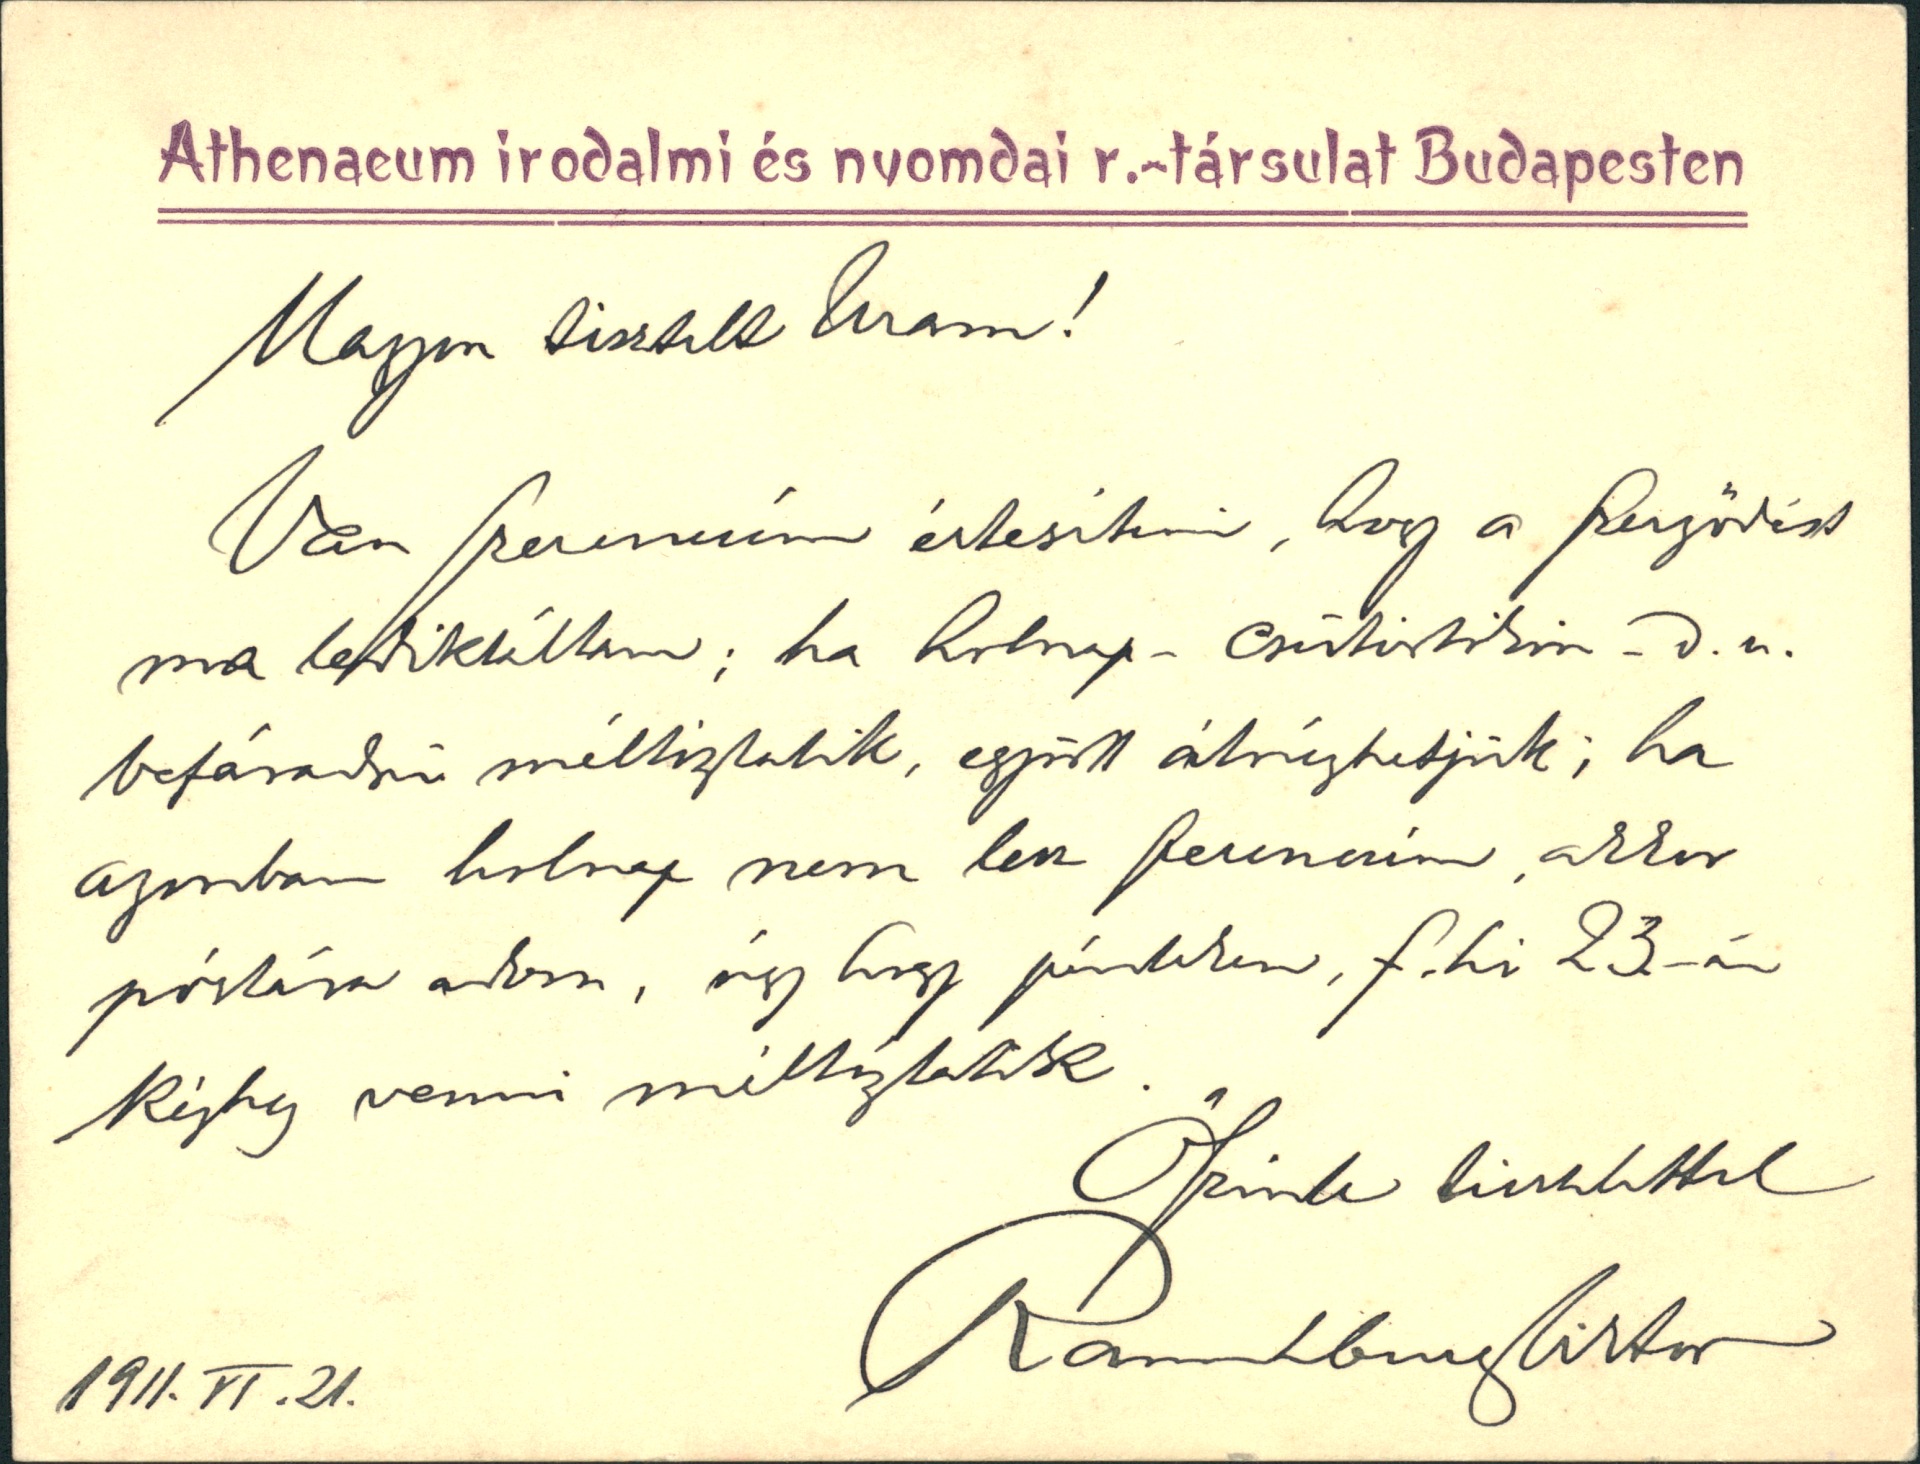 Athenaeum irodalmi és nyomdai r.-társulat Budapesten
Nagyon tisztelt Uram!
Van szerencsém értesíteni, hogy a szerződést
ma lediktáltam; ha holnap - csütörtökön - d. u.
befáradni méltóztatik, együtt átnézhetjük; ha
azonban holnap nem lesz szerencsém, akkor
póstára adom, úgy hogy pénteken, f. hó 23-án
kézhez venni méltóztatik.
Őszinte tisztelettel
Ranschburg Viktor
1911. VI. 21.